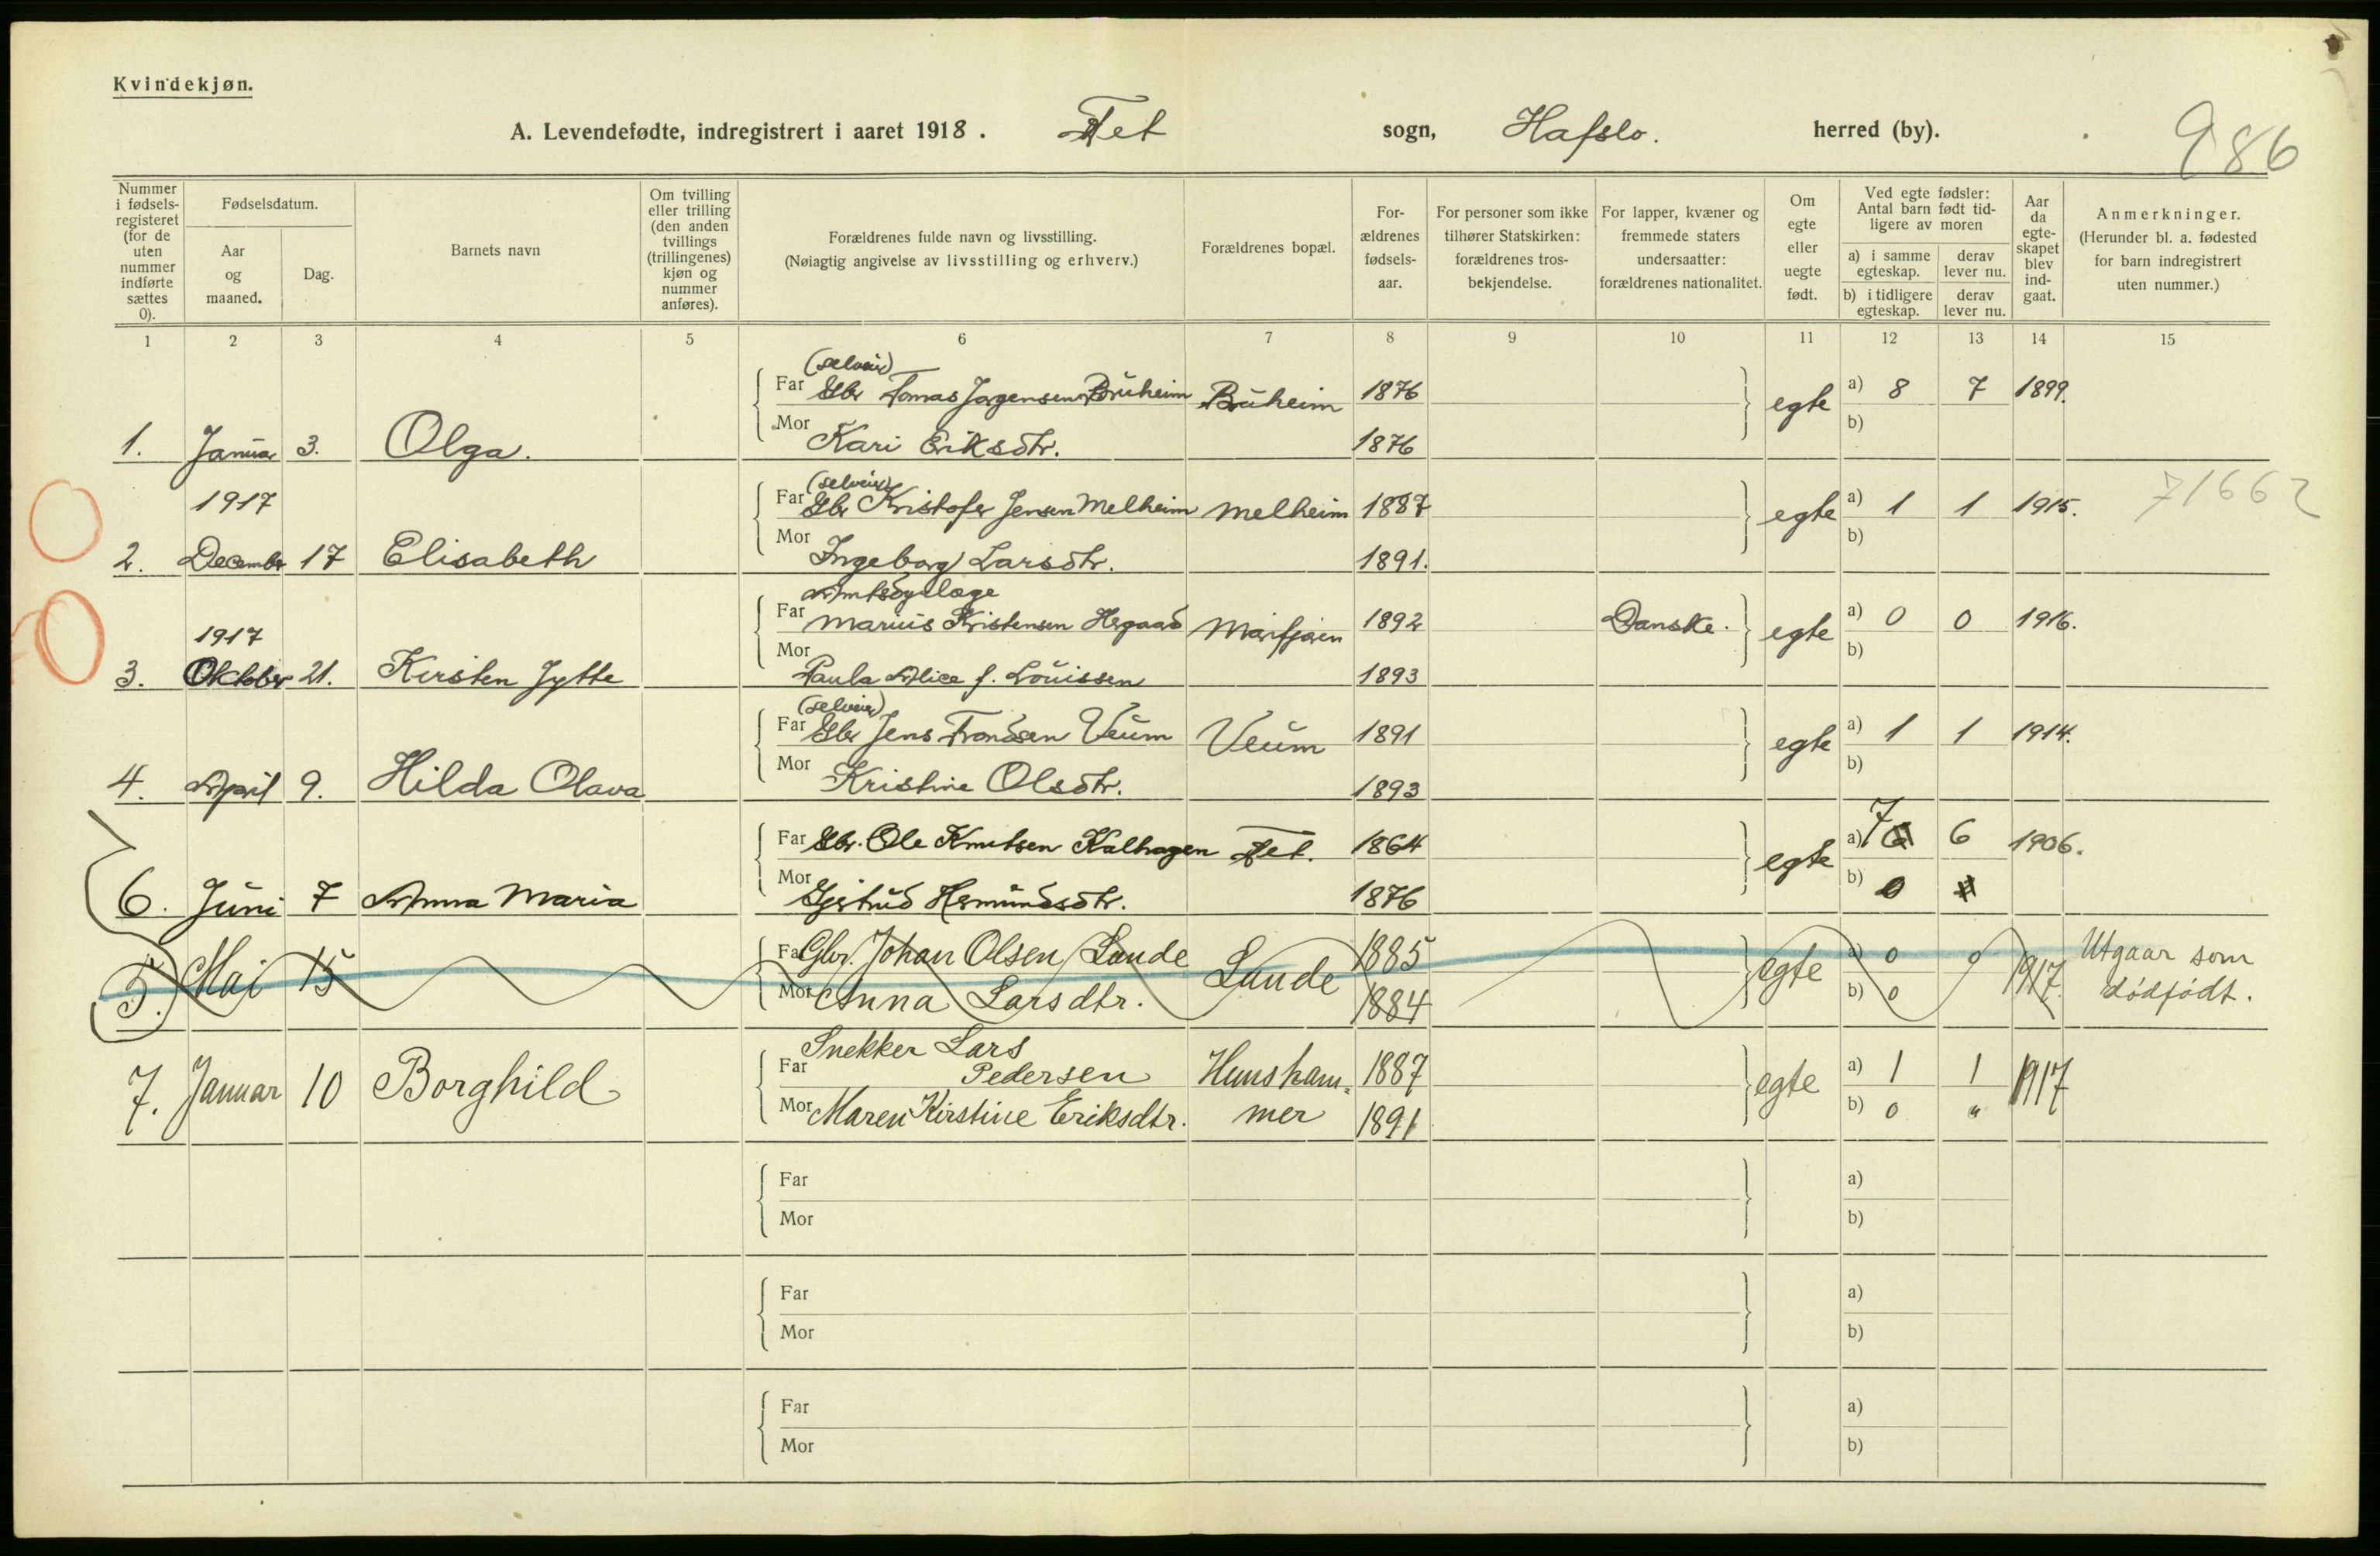 Kvindekjøn.
A. Levendefødte, indregistrert i aaret 1918. Fet sogn, Hafslo. herred (by).
986
Nummer i fødselsregisteret (for de uten nummer indførte sættes 0).
Fødselsdatum.
Aar og maaned.
Dag.
Barnets navn
Om tvilling eller trilling (den anden tvillings (trillingenes) kjøn og nummer anføres).
Forældrenes fulde navn og livsstilling.
(Nøiagtig angivelse av livsstilling og erhverv.)
Forældrenes bopæl.
Forældrenes fødselsaar.
For personer som ikke tilhører Statskirken: forældrenes trosbekjendelse.
For lapper, kvæner og fremmede staters undersaatter: forældrenes nationalitet.
Om egte eller uegte født.
Ved egte fødsler: Antal barn født tidligere av moren
a) i samme egteskap.
derav lever nu.
b) i tidligere egteskap.
derav lever nu.
Aar da egteskapet blev indgaat.
Anmerkninger.
(Herunder bl. a. fødested for barn indregistrert uten nummer.)
1 2 3 4 5 6 7 8 9 10 11 12 13 14 15
(selveier)
Far Gbr Tomas Jørgensen Bruheim Bruheim 1876 egte a) 8 7 1899.
1. Januar 3. Olga. Mor Kari Eriksdtr. 1876 b)
(selveier)
1917 Far Gbr Kristofer Jensen Melheim Melheim 1887 egte a) 1 1 1915. 71662
2. December 17 Elisabeth Mor Ingeborg Larsdtr. 1891. b)
Amtsdyrlæge
1917 Far Marius Kristensen Hegaard Marifjøren 1892 Danske. egte a) 0 0 1916.
3. Oktober 21. Kirsten Jytte Mor Paula Alice f. Louissen 1893 b)
(selveier)
Far Gbr Jens Trondsen Veum Veum 1891 egte a) 1 1 1914.
4. April 9. Hilda Olava Mor Kristine Olsdtr. 1893 b)
Far Gbr. Ole Knutsen Kalhagen Fet. 1864 egte a) 7 6 1906.
6. Juni 7 Anna Maria Mor Gjertrud Hermundsdtr. 1876 b) 0
Far Gbr. Johan Olsen Lunde Lunde 1885 egte a) 0 0 1917. Utgaar som
5. Mai 15 Mor Anna Larsdtr. 1884 b) 0 dødfødt.
Snekker Lars
Far Pedersen Hunsham- 1887 egte a) 1 1 1917
7. Januar 10 Borghild Mor Maren Kirstine Eriksdtr. mer 1891 b) 0 "
Far a)
Mor b)
Far a)
Mor b)
Far a)
Mor b)